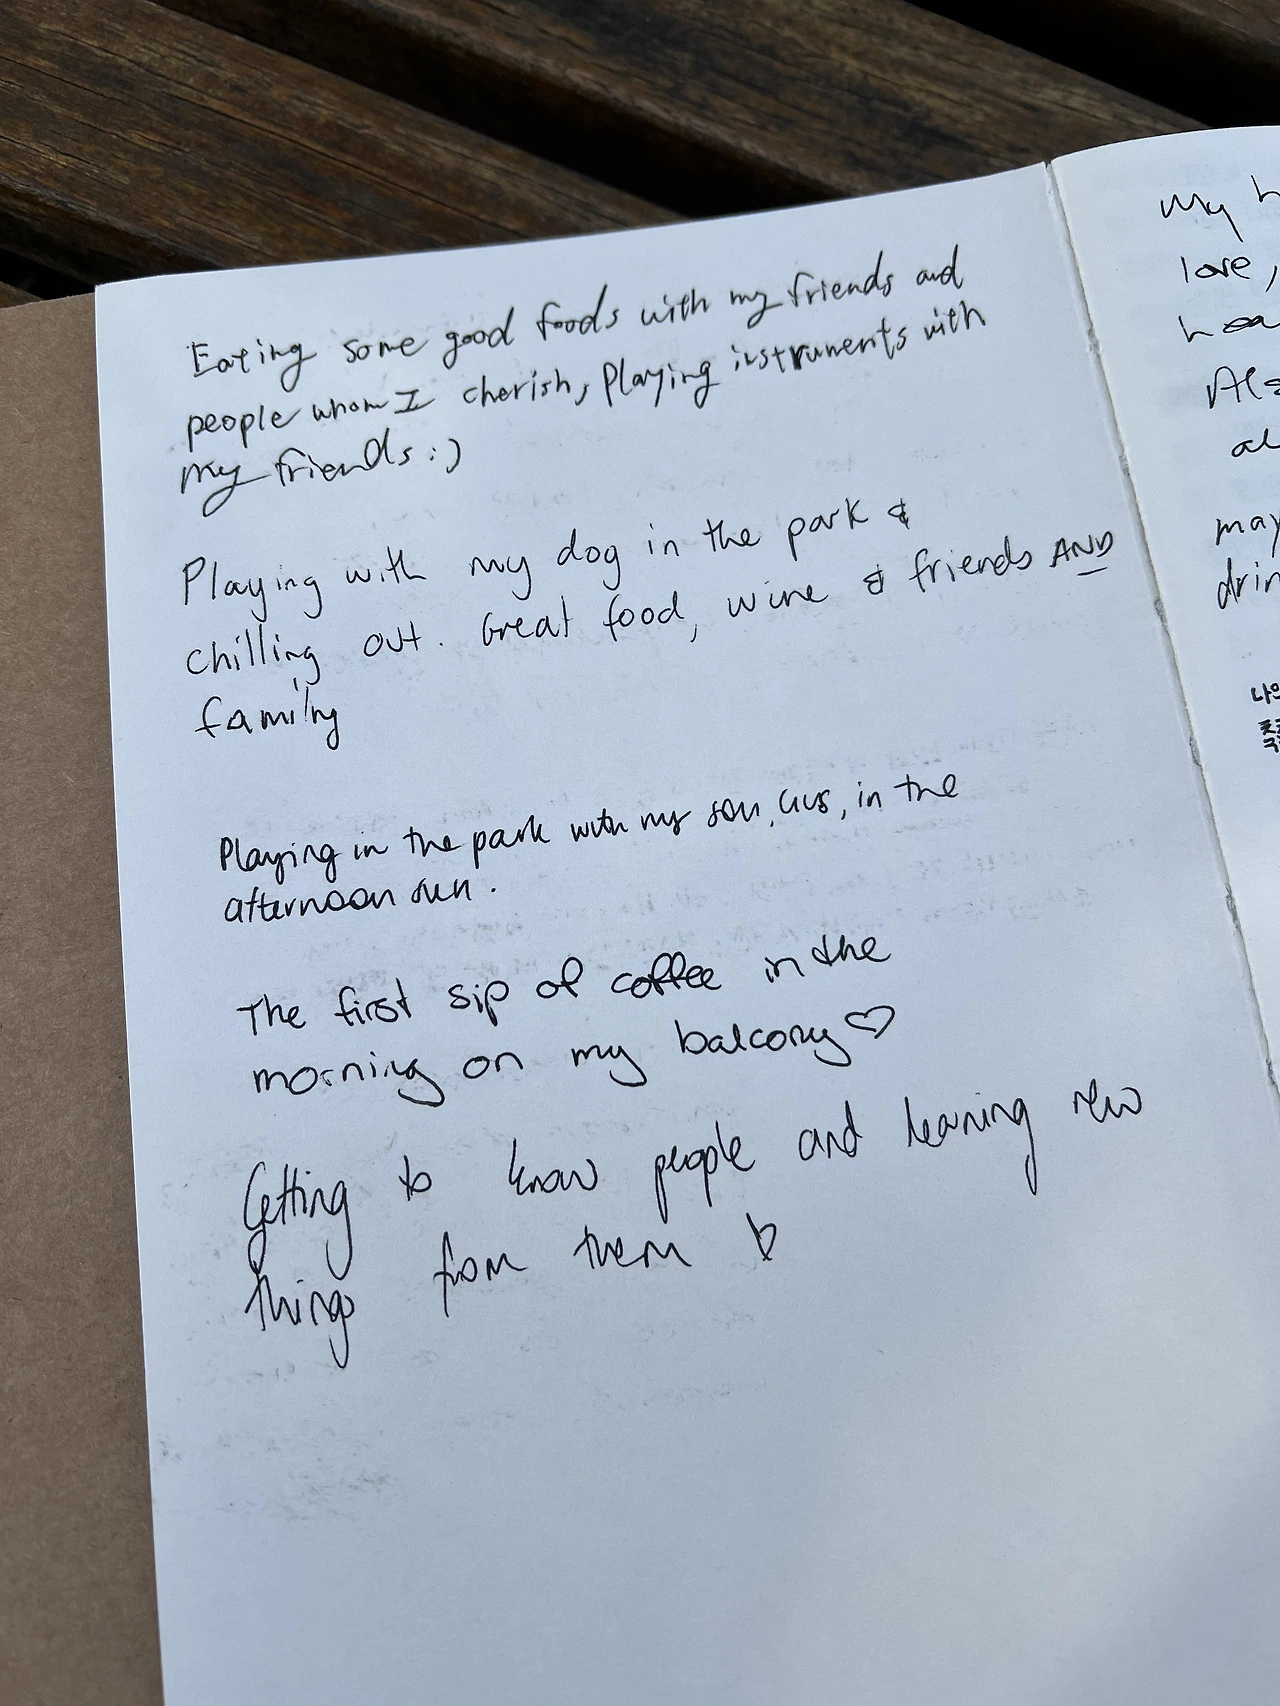 Eating some good foods with my friends and
people whom I cherish, Playing instruments with
my friends :)
Playing with my dog in the park &
chilling out. Great food, wine & friends AND
family
Playing in the park with my son, Gus, in the
afternoon sun.
The first sip of coffee in the
morning on my balcony ♡
Getting to know people and learning new
things from them ♡
My h
love,
hea
Als
al
may
drin
나의